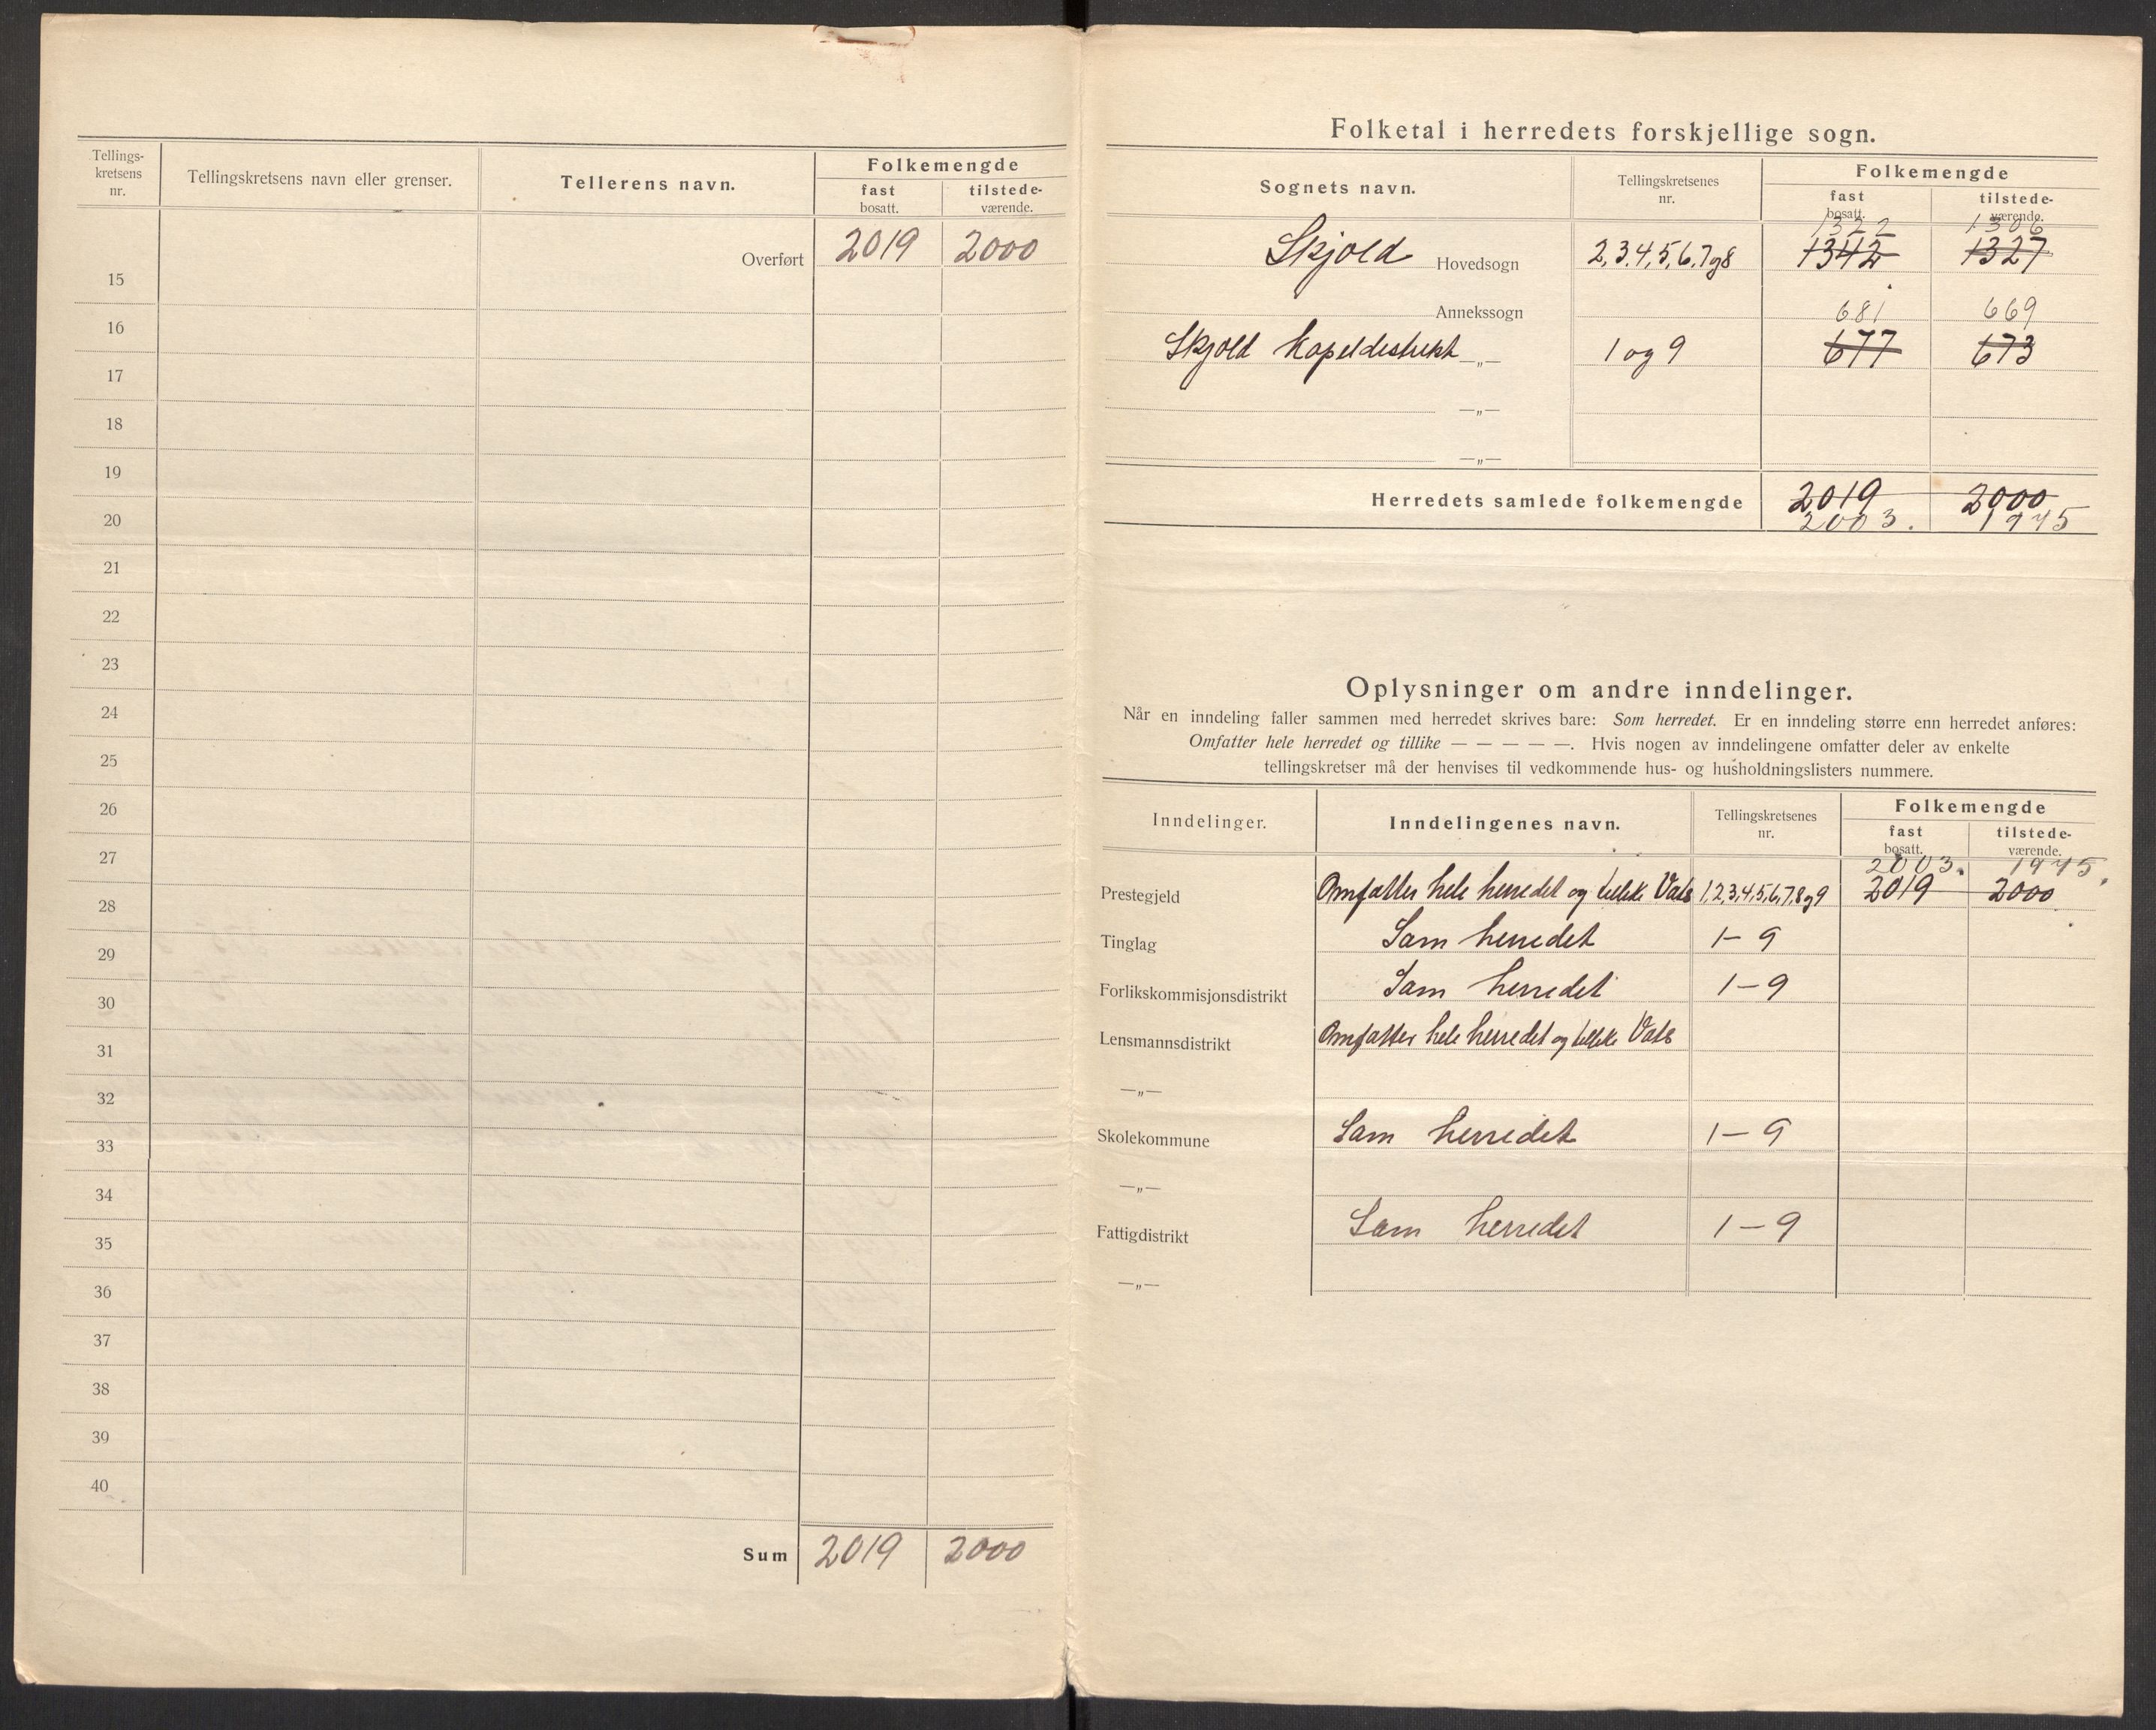 Tellings-
kretsens
nr.
Tellingskretsens navn eller grenser.
Tellerens navn.
Folkemengde
fast
bosatt.
tilstede-
værende.
Overført 2019 2000
15
16
17
18
19
20
21
22
23
24
25
26
27
28
29
30
31
32
33
34
35
36
37
38
39
40
Sum 2019 2000
Folketal i herredets forskjellige sogn.
Sognets navn.
Tellingskretsenes
nr.
Folkemengde
fast
bosatt.
tilstede-
værende.
1322 1306
Skjold Hovedsogn 2,3,4,5,6,7 og 8 1342 1327
Annekssogn 681 669
Skjold Kapeldistrikt —„— 1 og 9 677 673
—„—
—„—
Herredets samlede folkemengde 2019 2000
2003. 1975
Oplysninger om andre inndelinger.
Når en inndeling faller sammen med herredet skrives bare: Som herredet. Er en inndeling større enn herredet anføres:
Omfatter hele herredet og tillike — — — — —. Hvis nogen av inndelingene omfatter deler av enkelte
tellingskretser må der henvises til vedkommende hus- og husholdningslisters nummere.
Inndelinger.
Inndelingenes navn.
Tellingskretsenes
nr.
Folkemengde
fast
bosatt.
tilstede-
værende.
2003. 1975.
Prestegjeld Omfatter hele herredet og tillike Vats 1,2,3,4,5,6,7,8 og 9 2019 2000
Tinglag Som herredet 1–9
Forlikskommisjonsdistrikt Som herredet 1–9
Lensmannsdistrikt Omfatter hele herredet og tillike Vats
—„—
Skolekommune Som herredet 1–9
—„—
Fattigdistrikt Som herredet 1–9
—„—